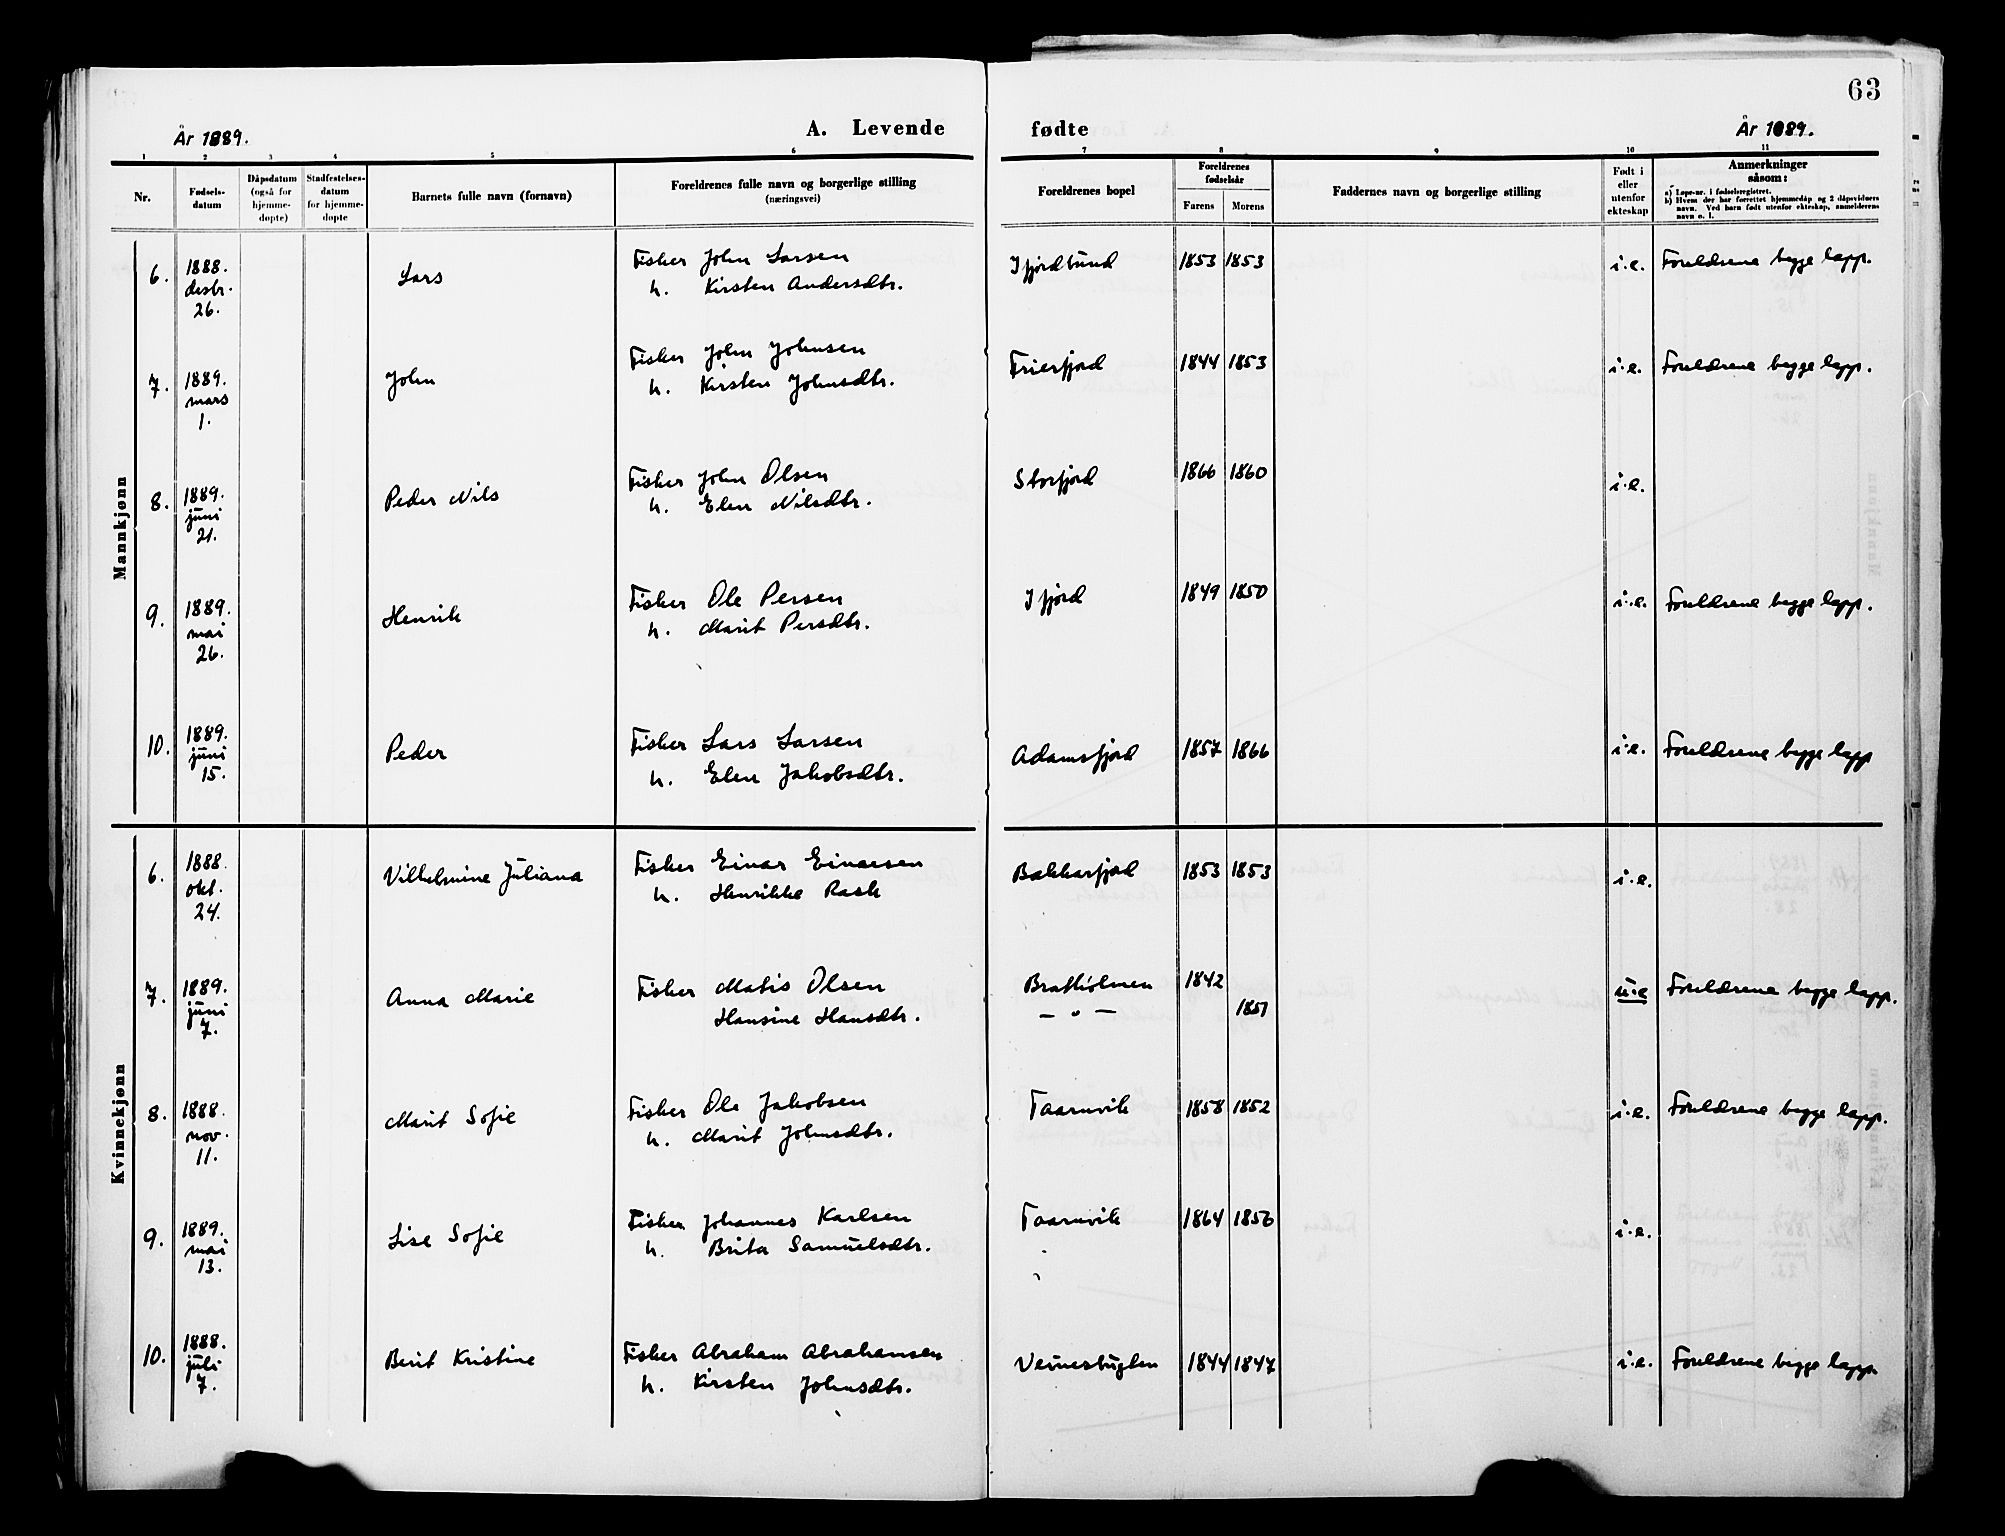 63
År 1889.
A. Levende fødte
År 1889.
1 2 3 4 5 6 7 8 9 10 11
Nr.
Fødsels-
datum
Dåpsdatum
(også for
hjemme-
døpte)
Stadfestelses-
datum
for hjemme-
døpte
Barnets fulle navn (fornavn)
Foreldrenes fulle navn og borgerlige stilling
(næringsvei)
Foreldrenes bopel
Foreldrenes
fødselsår
Farens Morens
Faddernes navn og borgerlige stilling
Født i
eller
utenfor
ekteskap
Anmerkninger
såsom:
a) Løpe-nr. i fødselsregistret.
b) Hvem der har forrettet hjemmedåp og 2 dåpsvidners
navn. Ved barn født utenfor ekteskap, anmelderens
navn o. l.
Mannkjønn
6. 1888. desbr. 26. Lars Fisker John Larsen Ifjordbund 1853 1853 i.e. Forældrene begge lapp.
h. Kirsten Andersdtr.
7. 1889. mars 1. John Fisker John Johnsen Frierfjord 1844 1853 i.e. Forældrene begge lapp.
h. Kirsten Johnsdtr.
8. 1889. juni 21. Peder Nils Fisker John Olsen Storfjord 1866 1860 i.e.
h. Elen Nilsdtr.
9. 1889. mai 26. Henrik Fisker Ole Persen Ifjord 1849 1850 i.e. Forældrene begge lapp.
h. Marit Persdtr.
10. 1889. juni 15. Peder Fisker Lars Larsen Adamsfjord 1857 1866 i.e. Forældrene begge lapp
h. Elen Jakobsdtr.
Kvinnekjønn
6. 1888. okt. 24. Vilhelmine Juliana Fisker Einar Einarsen Bakkarfjord 1853 1853 i.e.
h. Henrikke Rask
7. 1889. juni 7. Anna Marie Fisker Matis Olsen Bratholmen 1842 u.e Forældrene begge lapp.
Hansine Hansdtr. — " — 1851
8. 1888. nov. 11. Marit Sofie Fisker Ole Jakobsen Taarnvik 1858 1852 i.e. Forældrene begge lapp.
h. Marit Johnsdtr.
9. 1889. mai 13. Lise Sofie Fisker Johannes Karlsen Taarnvik 1864 1856 i.e.
h. Brita Samuelsdtr.
10. 1888. juli 7. Berit Kristine Fisker Abraham Abrahamsen 1844 1847 i.e. Forældrene begge lapp.
h. Kirsten Johnsdtr.